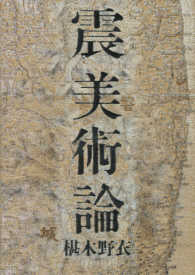 震美術論
椹木野衣